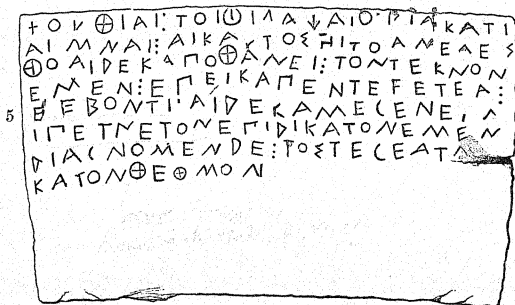 ΧΟΥΘΙΑΙ⁝ΤΟΙΦΙΛΑΨΑΙΟ·ΔΙΑΚΑΤΙ
ΑΙΜΝΑΙ⁝ΑΙΚΑΥΤΟΣΗΙΤΟΑΝΕΛΕΣ
ΘΟΑΙΔΕΚΑΠΟΘΑΝΕΙ⁝ΤΟΝΤΕΚΝΟΝ
ΕΜΕΝ⁝ΕΠΕΙΚΑΠΕΝΤΕϜΕΤΕΑ⁝
5 ΗΕΒΟΝΤΙ·ΑΙΔΕΚΑΜΕΓΕΝΕΛ
ΙΠΕΤΝΕΤΟΝΕΠΙΔΙΚΑΤΟΝΕΜΕΝ
ΔΙΑΓΝΟΜΕΝΔΕ⁝ΤΟΣΤΕΓΕΑΤΑ
ΚΑΤΟΝΘΕΘΜΟΝ